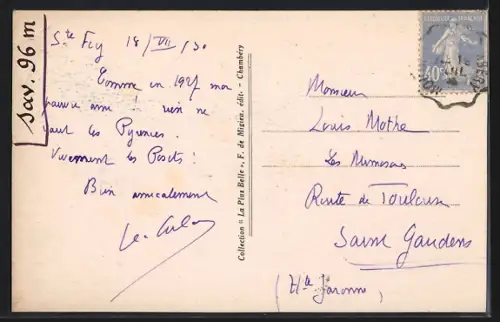 Sav. 96 m
Ste Foy 18/VII/30
Comme en 1927 mon
pauvre ami ! rien ne
vaut les Pyrénées.
Vivement les Posets !
Bien amicalement
Collection " La Plus Belle ", F. de Migieu, édit. - Chambéry
40c
Monsieur
Louis Mothe
Les Mimosas
Route de Toulouse
Saint Gaudens
(Hte Garonne)